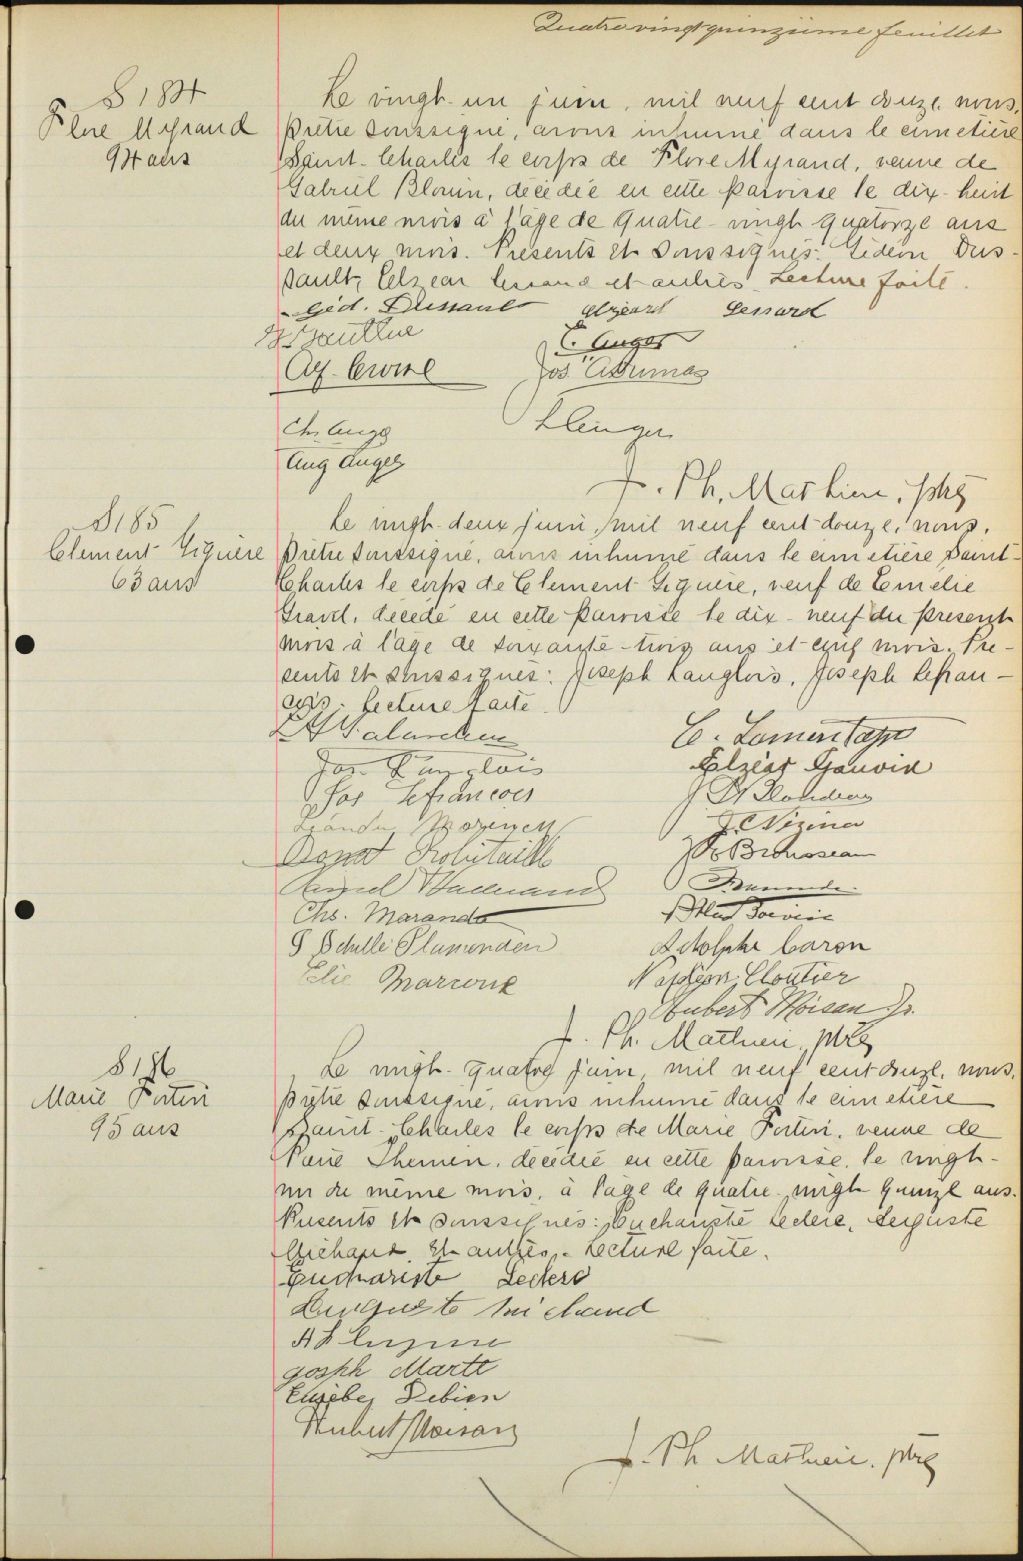 Quatrevingtquinzième feuillet
S 184
Flore Myrand
94 ans
Le vingt-un juin, mil neuf cent douze, nous,
prêtre soussigné, avons inhumé dans le cimetière
Saint-Charles le corps de Flore Myrand, veuve de
Gabriel Blouin, décédée en cette paroisse le dix-huit
du même mois à l'âge de quatre-vingt quatorze ans
et deux mois. Présents et soussignés: Gédéon Dus-
sault, Elzéar Lessard et autres. Lecture faite.
Géd. Dussault Elzéard Lessard
C. Auger
Jos.
Chs Auger
Aug Auger
J. Ph. Mathieu, ptre
S 185
Clément Giguère
63 ans
Le vingt-deux juin, mil neuf cent-douze, nous,
prêtre soussigné, avons inhumé dans le cimetière Saint-
Charles le corps de Clément Giguère, veuf de Emélie
Gravel, décédé en cette paroisse le dix-neuf du présent
mois à l'âge de soixante-trois ans et cinq mois. Pré-
sents et soussignés: Joseph Langlois, Joseph Lefran-
çois. Lecture faite.
Jos. Langlois
Elzéar Gauvin
Jos Lefrancois
J. Vézina
Robitaille
Brousseau
Chs. Maranda
Boivin
Adolphe Caron
Elie Marcoux
Napoléon Cloutier
Hubert Moisan Jr.
J. Ph. Mathieu, ptre
S 186
Marie Fortin
95 ans
Le vingt-quatre juin, mil neuf cent douze, nous,
prêtre soussigné, avons inhumé dans le cimetière
Saint-Charles le corps de Marie Fortin, veuve de
décédée en cette paroisse, le vingt-
un du même mois, à l'âge de quatre-vingt quinze ans.
Présents et soussignés: Euchariste Leclerc, Auguste
Michaud et autres. Lecture faite.
Euchariste Leclerc
Auguste Michaud
Josph Marte
Eusèbe Debien
Hubert Moisan
J. Ph Mathieu, ptre